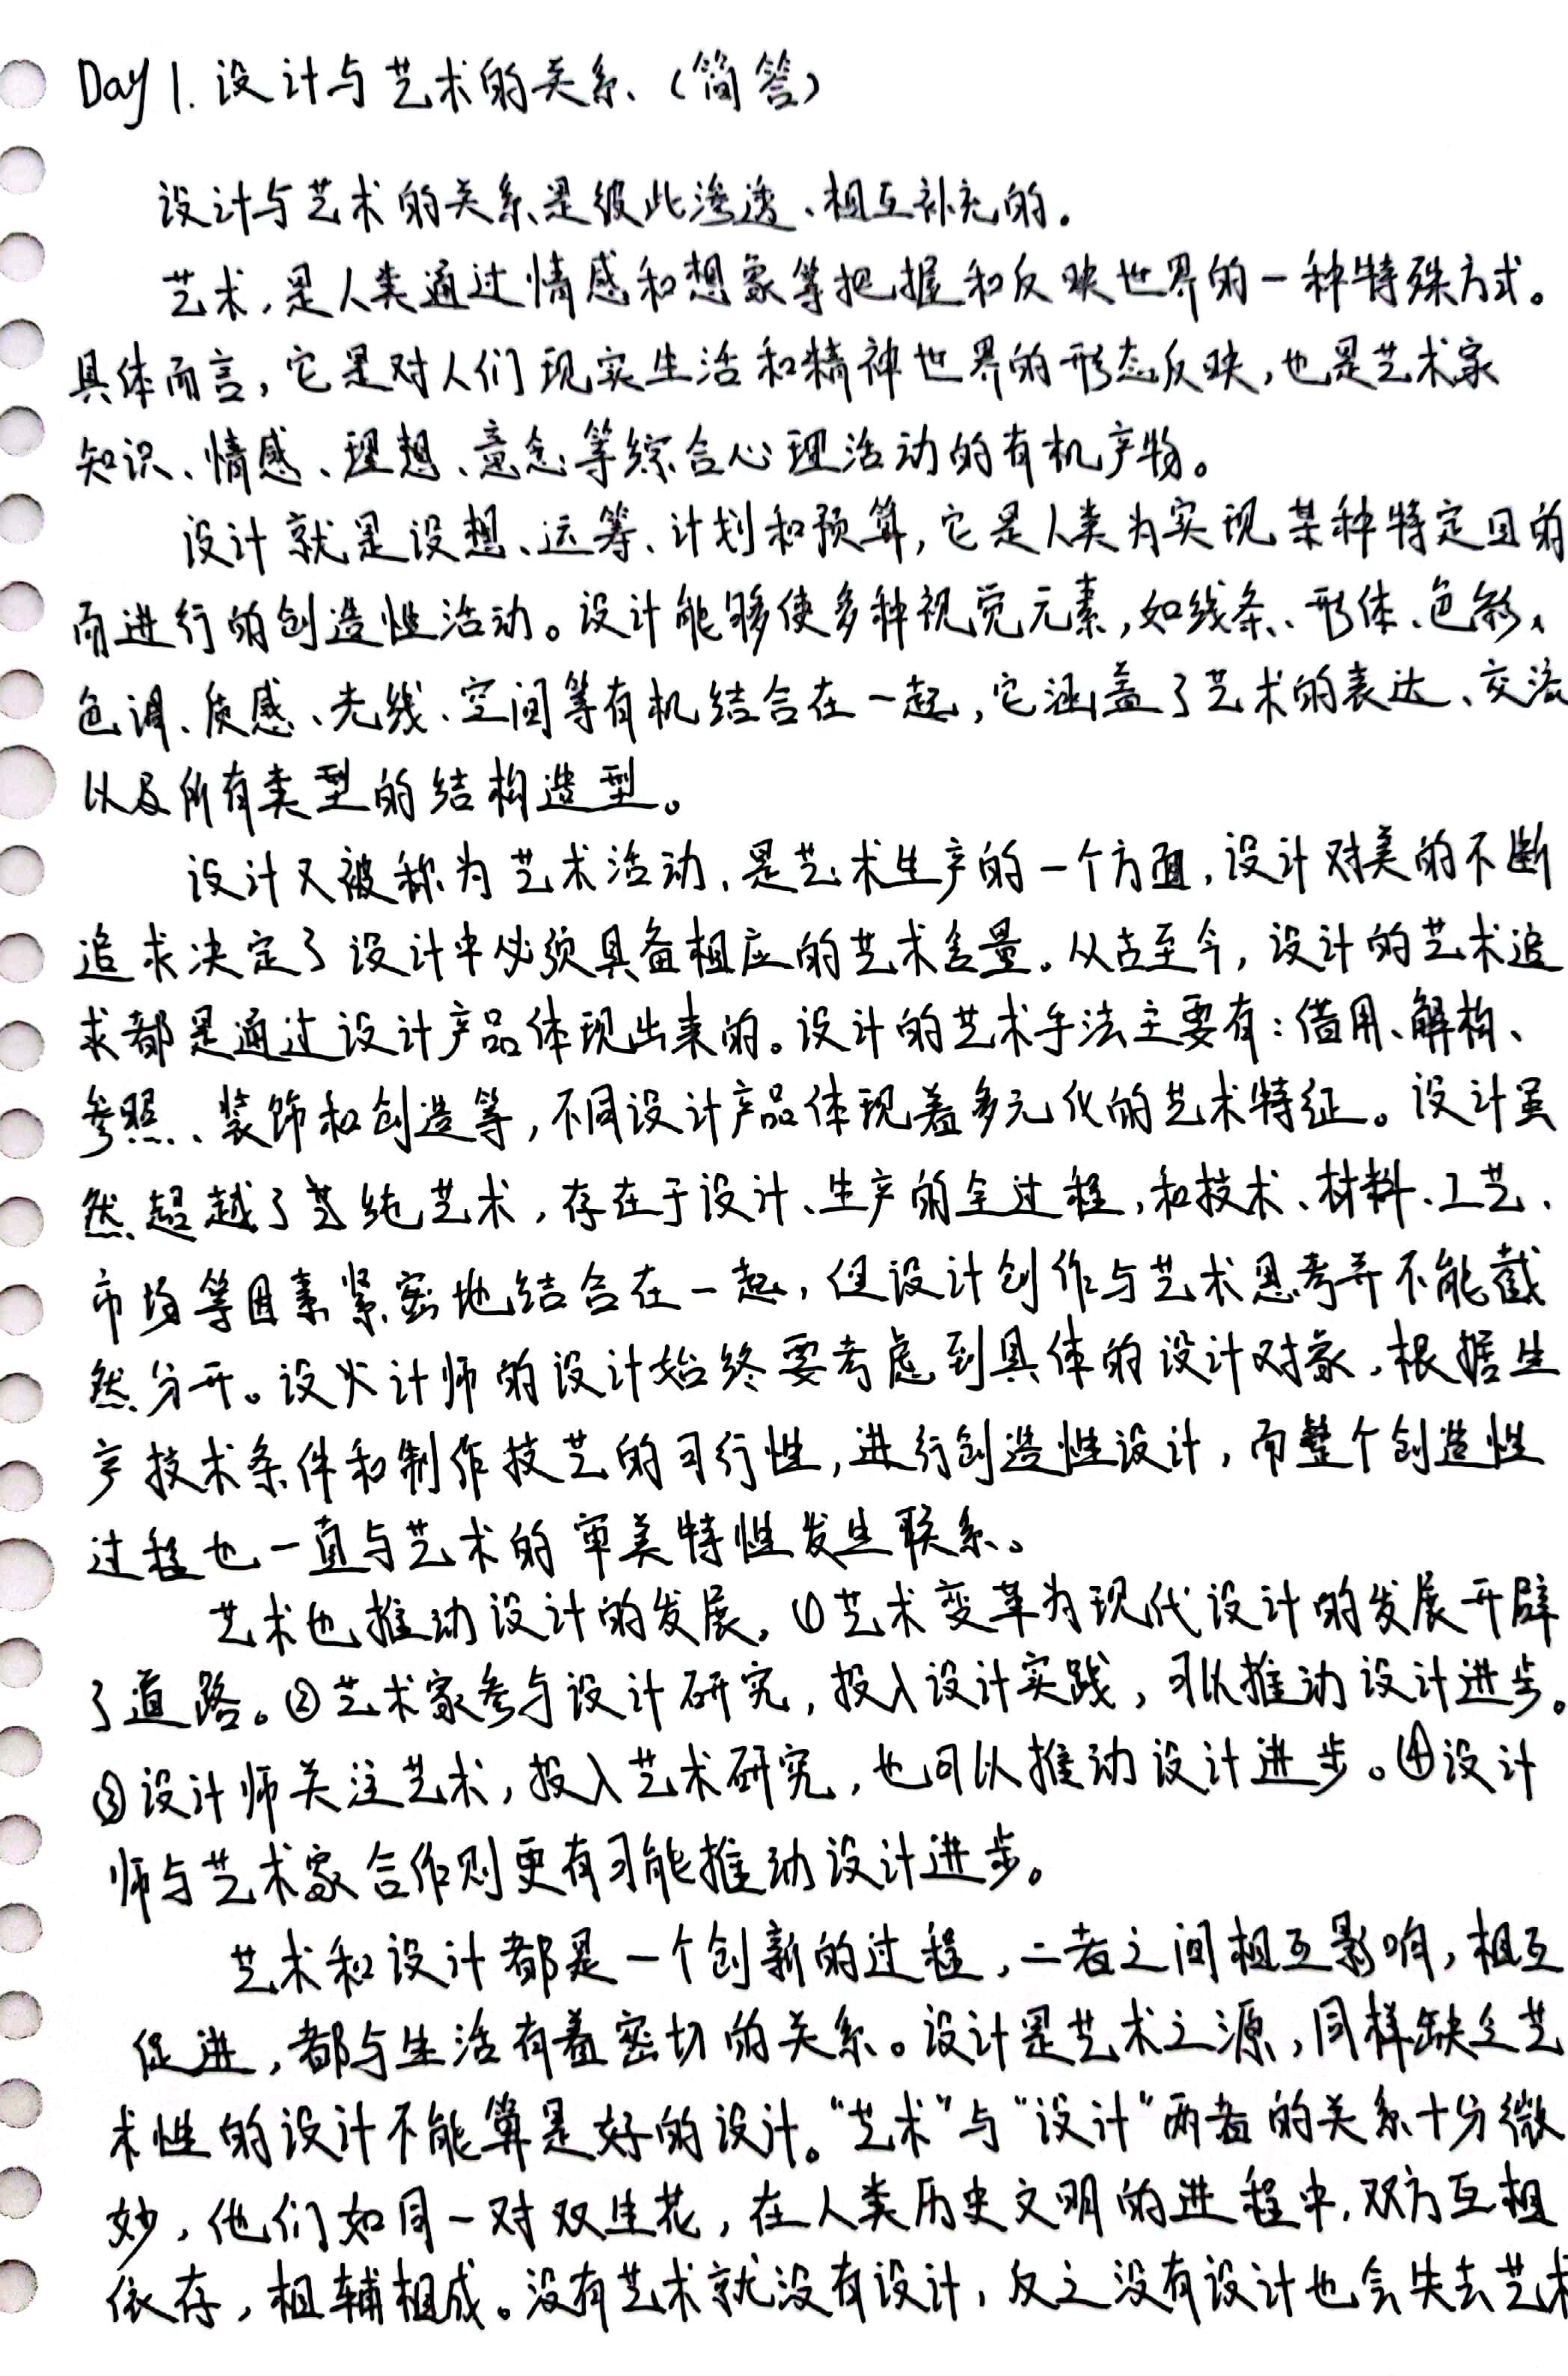 Day 1. 设计与艺术的关系、(简答)
设计与艺术的关系是彼此渗透、相互补充的。
艺术,是人类通过情感和想象等把握和反映世界的一种特殊方式。
具体而言,它是对人们现实生活和精神世界的形态反映,也是艺术家
知识、情感、理想、意念等综合心理活动的有机产物。
设计就是设想、运筹、计划和预算,它是人类为实现某种特定目的
而进行的创造性活动。设计能够使多种视觉元素,如线条、形体、色彩、
色调、质感、光线、空间等有机结合在一起,它涵盖了艺术的表达、交流
以及所有类型的结构造型。
设计又被称为艺术活动,是艺术生产的一个方面,设计对美的不断
追求决定了设计中必须具备相应的艺术含量。从古至今,设计的艺术追
求都是通过设计产品体现出来的。设计的艺术手法主要有:借用、解构、
参照、装饰和创造等,不同设计产品体现着多元化的艺术特征。设计虽
然超越了纯艺术,存在于设计、生产的全过程,和技术、材料、工艺、
市场等因素紧密地结合在一起,但设计创作与艺术思考并不能截
然分开。设计师的设计始终要考虑到具体的设计对象,根据生
产技术条件和制作技艺的可行性,进行创造性设计,而整个创造性
过程也一直与艺术的审美特性发生联系。
艺术也推动设计的发展,①艺术变革为现代设计的发展开辟
了道路。②艺术家参与设计研究,投入设计实践,可以推动设计进步。
③设计师关注艺术,投入艺术研究,也可以推动设计进步。④设计
师与艺术家合作则更有可能推动设计进步。
艺术和设计都是一个创新的过程,二者之间相互影响,相互
促进,都与生活有着密切的关系。设计是艺术之源,同样缺乏艺
术性的设计不能算是好的设计。“艺术”与“设计”两者的关系十分微
妙,他们如同一对双生花,在人类历史文明的进程中,双方互相
依存,相辅相成。没有艺术就没有设计,反之没有设计也会失去艺术